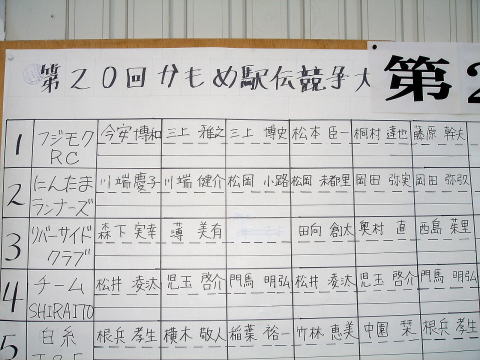 第20回かもめ駅伝競争大
第2
1 フジモク RC 今安 博和 三上 雅之 三上 博史 松本 臣一 桐村 達也 藤原 幹夫
2 にんたま ランナーズ 川端 慶子 川端 健介 松岡 小路 松岡 未都里 岡田 弥実 岡田 弥取
3 リバーサイド クラブ 森下 実幸 美有 田向 創太 奥村 直 西島 茉里
4 チーム SHIRAITO 松井 凌汰 児玉 啓介 門馬 明弘 松井 凌汰 児玉 啓介 門馬 明弘
5 白糸 根兵 孝生 横木 敬人 稲葉 裕一 竹林 恵美 中園 栞 根兵 孝生